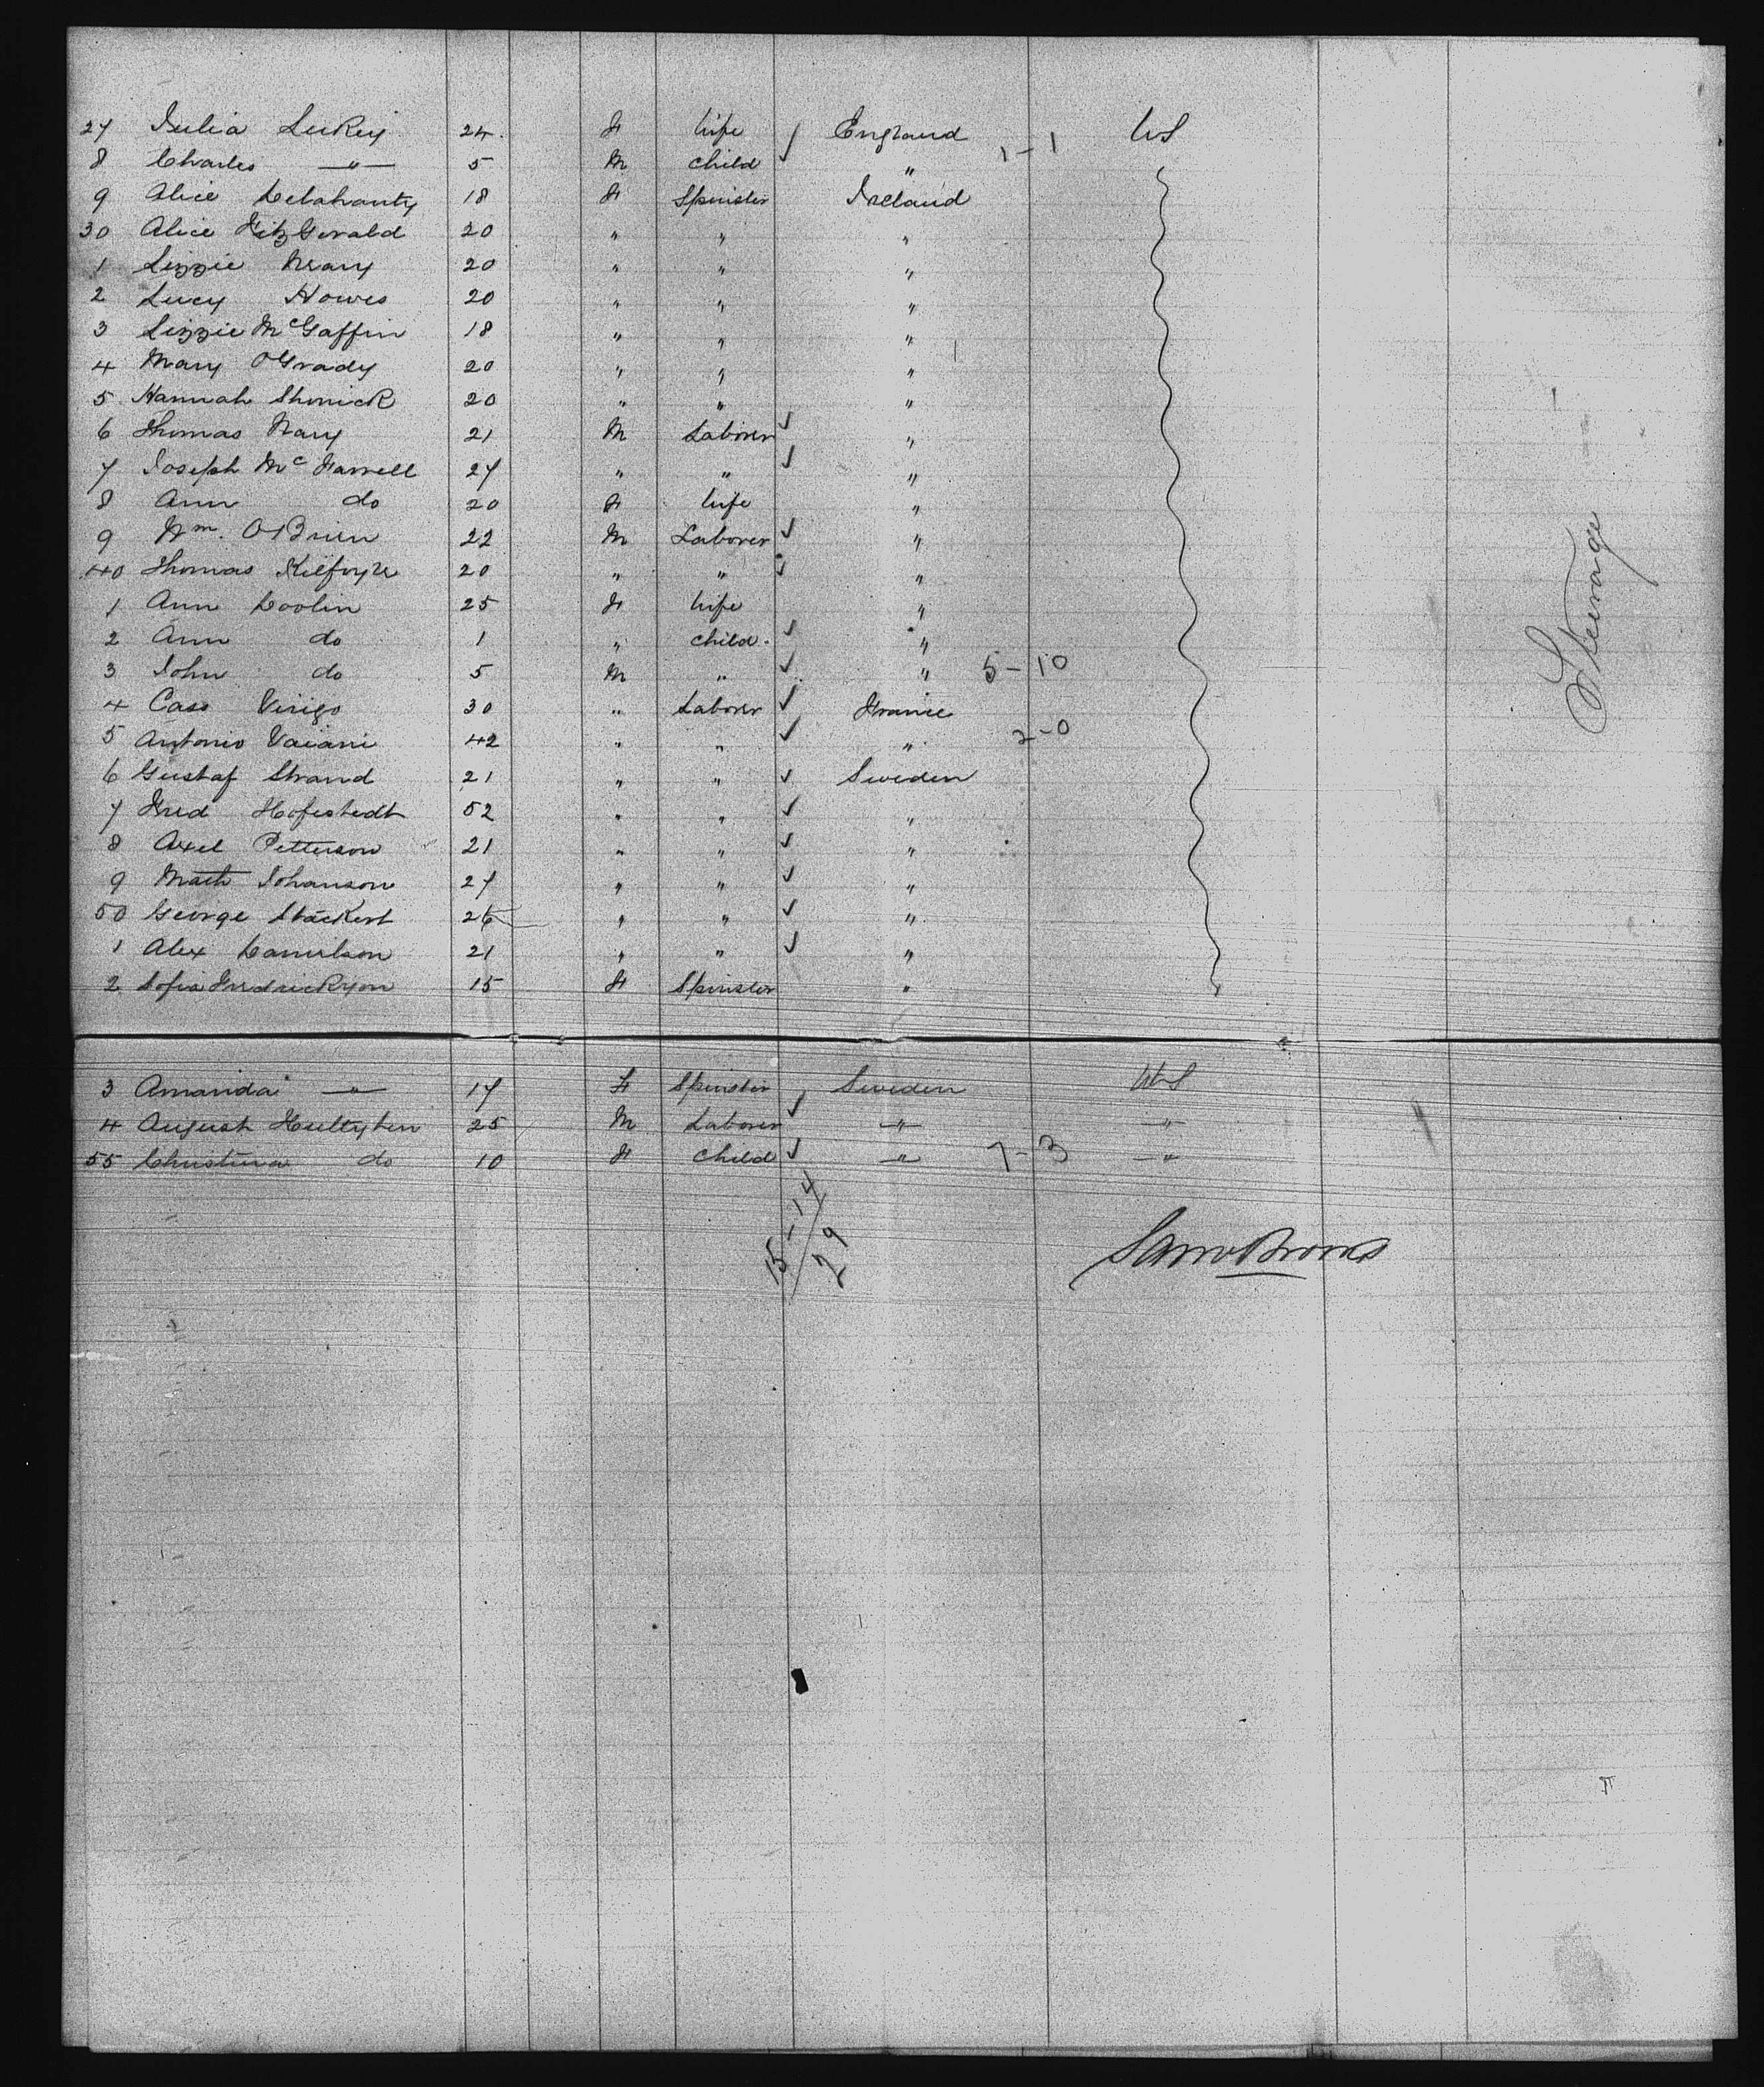 27 Julia Luckey 24. F Wife England 1-1 US
8 Charles —"— 5 M Child "
9 Alice Delahanty 18 F Spinster Ireland
30 Alice FitzGerald 20 " " "
1 Lizzie Neary 20 " " "
2 Lucy Howes 20 " " "
3 Lizzie McGaffin 18 " " "
4 Mary O'Grady 20 " " "
5 Hannah Shinick 20 " " "
6 Thomas Nary 21 M Laborer "
7 Joseph Mc Farrell 27 " " "
8 Ann do 20 F Wife "
9 Wm. O'Brien 22 M Laborer "
40 Thomas Kilfoyle 20 " " "
1 Ann Doolin 25 F Wife "
2 Ann do 1 " Child. "
3 John do 5 M " " 5-10
4 Cass Virigo 30 " Laborer France
5 Antonio Vaiani 42 " " " 2-0
6 Gustaf Strand 21 " " Sweden
7 Fred Hofestedt 52 " " "
8 Axel Petterson 21 " " "
9 Math Johanson 27 " " "
50 George Stäckert 26 " " "
1 Alex Danielson 21 " " "
2 Sofia Fredrickson 15 F Spinster "
Steerage
3 Amanda —"— 17 F Spinster Sweden US
4 August 25 M Laborer —"— —"—
55 Christina do 10 F Child —"— 7-3 —"—
15-14
29
Sam Brooks